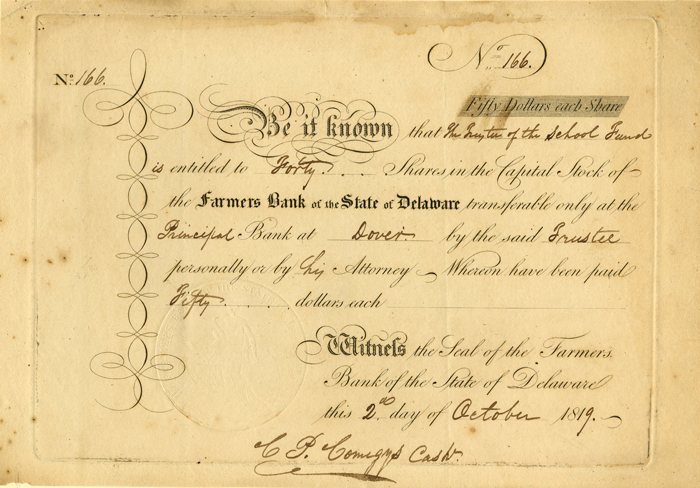 No. 166.
No. 166.
Fifty Dollars each Share
Be it known that The Trustee of the School Fund
is entitled to Forty Shares in the Capital Stock of
the Farmers Bank of the State of Delaware transferable only at the
Principal Bank at Dover by the said Trustee
personally or by his Attorney Whereon have been paid
Fifty dollars each
Witness the Seal of the Farmers
Bank of the State of Delaware
this 2nd day of October 1819.
C. P. Comegys Cashr.